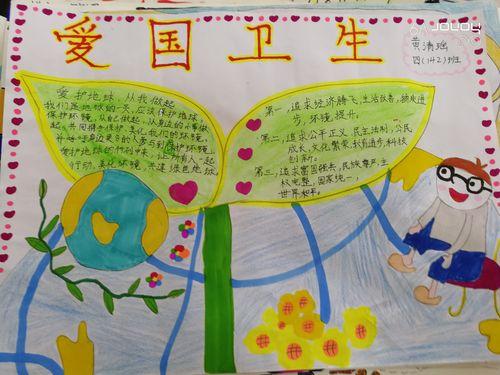 爱国卫生
黄清瑶
四(142)班
爱护地球 从我做起
我们是地球的一员,应该保护地球,
保护环境。从自己做起,从身边的小事做
起。共同携手保护、美化我们的环境,
地球。爱护地球的行动中来,让所有人一起
行动,美化环境,共建绿色地球。
第一,追求经济腾飞,生活改善,物质进
步,环境提升。
第二,追求公平正义,民主法制,公民
成长,文化繁荣,教育进步,科技
创新。
第三,追求富国强兵,民族尊严,主
权完整,国家统一,
世界和平。